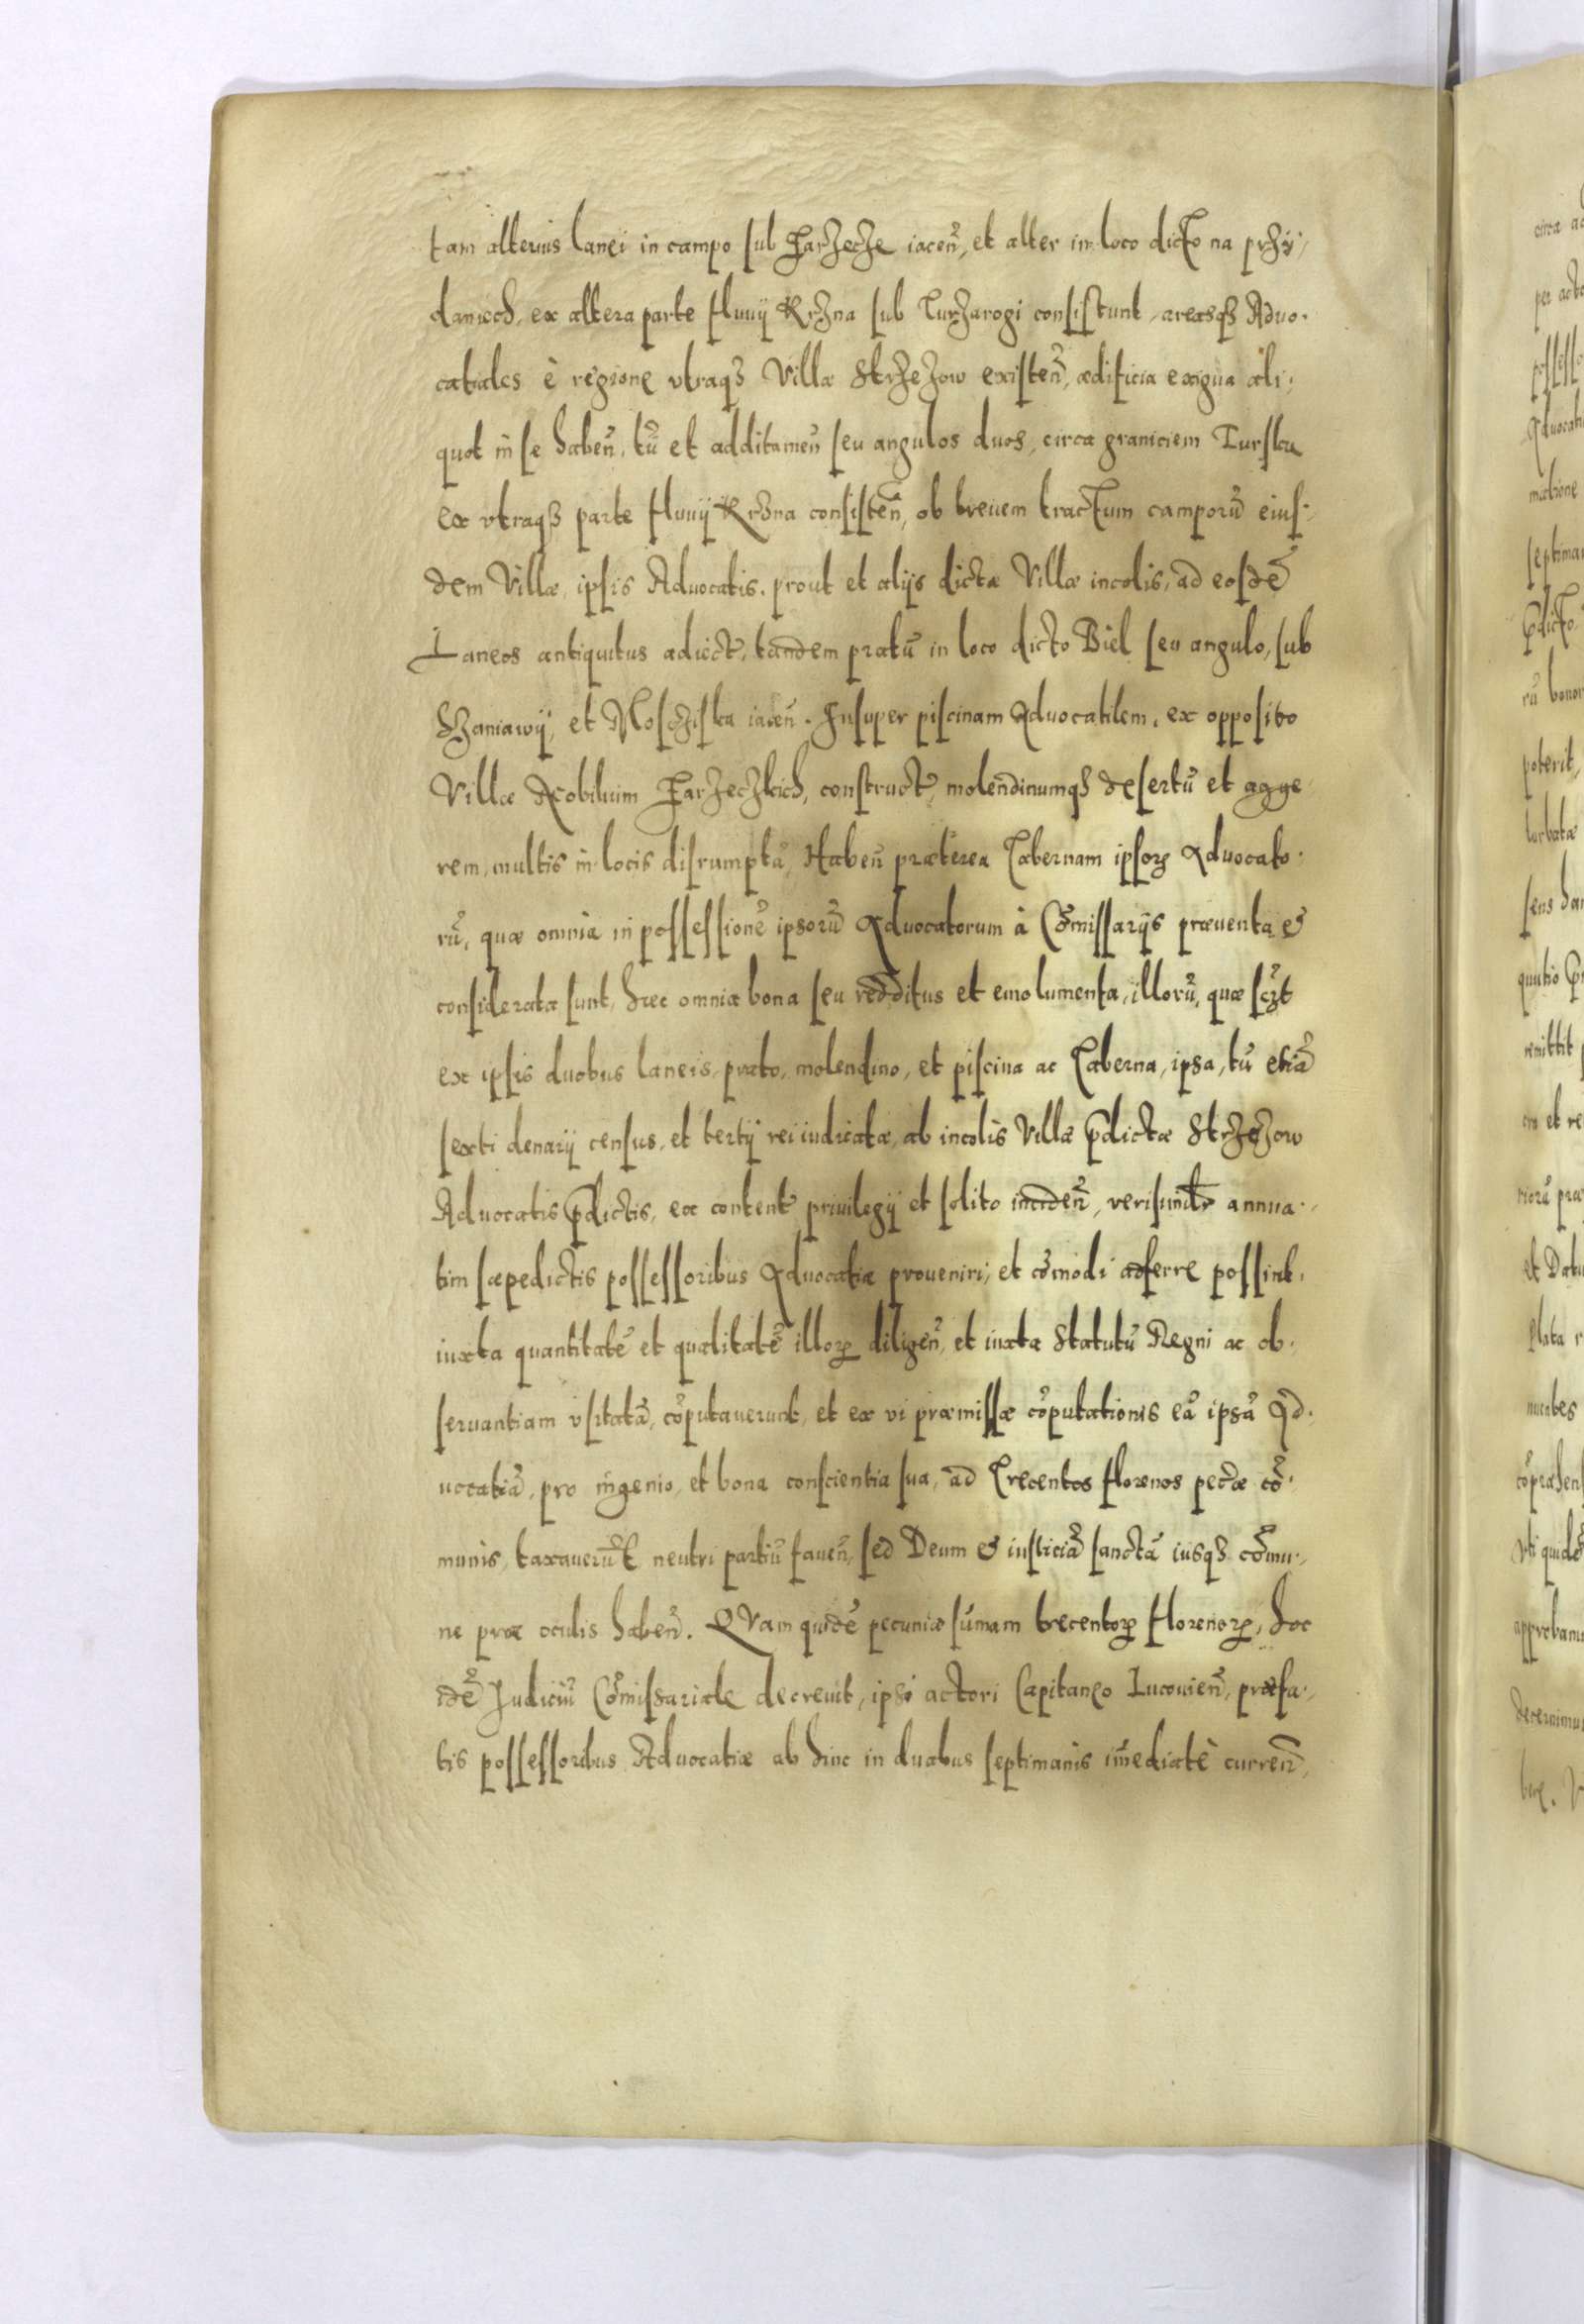 tam alterius lanei in campo sub Zarzecze iacen̄, et alter in loco dicto na przy,
danicoh, ex altera parte fluuij Krzna sub Turzarogi consistunt, areasqꝫ Aduo.
catiales è regione vtraqꝫ Villæ Strzezow existen̄, ædificia exigua ali,
quot in se haben̄, tū et additamen̄ seu angulos duos, circa graniciem Turska
ex vtraqꝫ parte fluuij Krzna consisten̄, ob breuem tractum camporū eius,
dem Villæ, ipsis Aduocatis, prout et alijs dictæ Villæ incolis, ad eosdē
Laneos antiquitus adiect, tandem pratū in loco dicto Biel seu angulo, sub
Szaniawÿ, et Mosciska iacen̄. Insuper piscinam Aduocatilem, ex opposito
Villæ Nobilium Zarzeczkich, construct, molendinumqꝫ desertū et agge
rem, multis in locis disrumptā, Haben̄ præterea Tabernam ipsoꝝ Aduocato.
rū, quæ omnia in possessionē ipsorū Aduocatorum à Cōmissarijs præuenta &
considerata sunt, hæc omnia bona seu redditus et emolumenta, illorū, quæ scꝫt
ex ipsis duobus laneis, prato, molendino, et piscina ac Taberna, ipsa, tū etiā
sexti denarij census, et tertij rei iudicatæ, ab incolis Villæ p̄dictæ Strzezow
Aduocatis p̄dictis, ex content priuilegij et solito inciden̄, verisimilr annua.
tim sæpedictis possessoribus Aduocatiæ proueniri, et cōmodi adferre possint,
iuxta quantitatē et qualitatē illoꝝ diligen̄, et iuxta Statutū Regni ac ob.
seruantiam vsitatā, cōputauerunt, et ex vi præmissæ cōputationis eā ipsā Ad.
uocatiā, pro ingenio, et bona conscientia sua, ad Trecentos florenos pecūæ cō.
munis, taxauerūt neutri partiū fauen̄, sed Deum & iusticiā sanctā iusqꝫ cōmu,
ne præ oculis haben̄. QVam quidē pecuniæ sūmam trecentoꝝ florenoꝝ, hoc
idē Iudiciū Cōmissariale decreuit, ipsi actori Capitaneo Lucouien̄, præfa,
tis possessoribus Aduocatiæ ab hinc in duabus septimanis im̄ediatè curren̄,